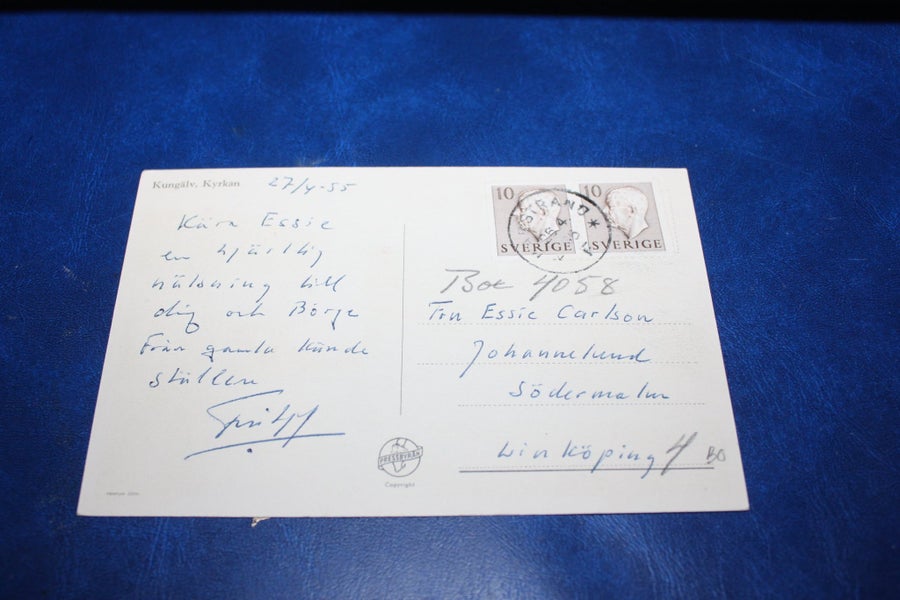 Kungälv, Kyrkan 27/4-55
Kära Essie
en hjärtlig
hälsning till
dig och Börje
Från gamla kände
ställen
10 10
SVERIGE SVERIGE
STRAND
Box 4058
Fru Essie Carlson
Johannelund
Södermalm
Linköping 4 BO
PRESSBYRÅN
Copyright